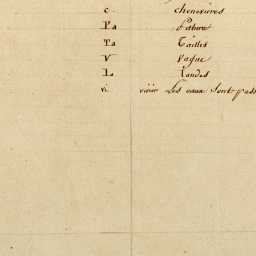 c. chenevieres
Pa Pature
Ta Tailles
V Vague
L Landes
vi les eaux sont pass